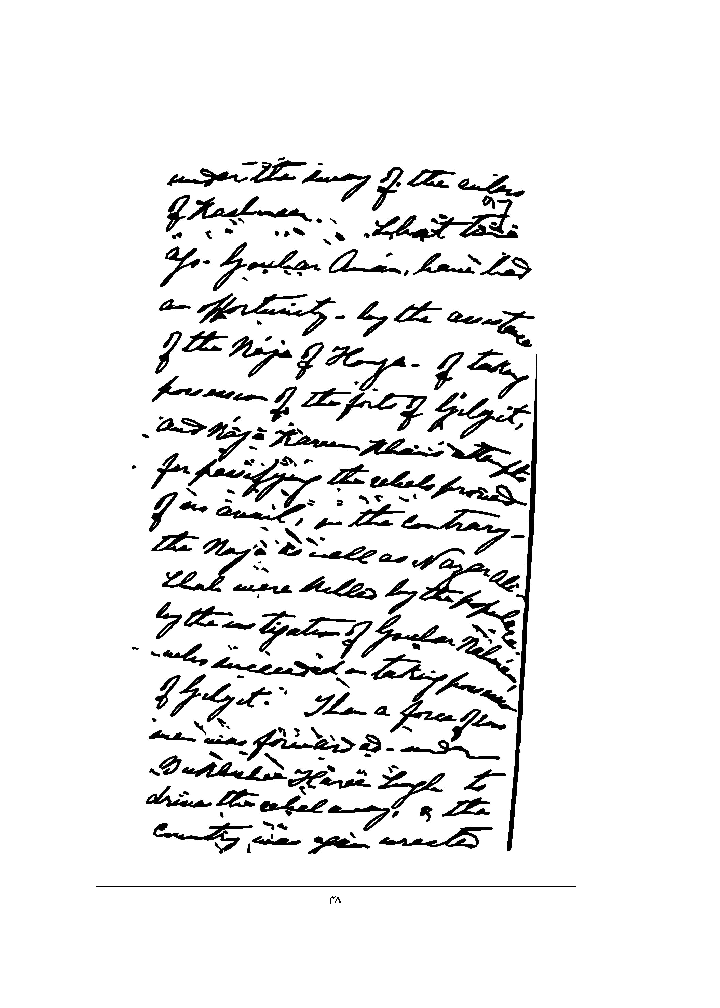 under the sway of the rulers
of Kashmeer. That time
ago. Gouhar Aman, have had
an opportunity - by the assistance
of the Raja of Hunza - of taking
possession of the forts of Gilgit,
and Raja Kareem Khan's attempts
for passifying the rebels proved
of no avail, on the contrary -
the Raja as well as Nazar Ali
Shah were killed by the populace
by the instigation of Gouhar
who succeeded in taking possession
of Gilgit." Then a force of
men was forwarded - under
Bukhshee Haree Singh to
drive the rebel away, & the
country was again wrested
٣٨